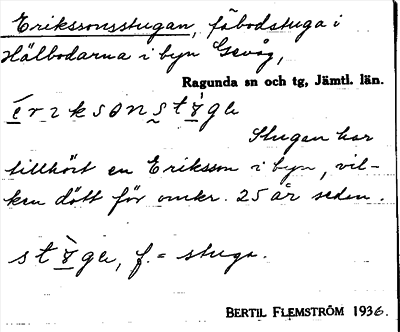 Erikssonsstugan, fäbodstuga i
Hälbodarna i byn Gevåg,
Ragunda sn och tg, Jämtl. län.
Stugan har
tillhört en Eriksson i byn, vil-
ken dött för omkr. 25 år sedan.
f. = stuga.
BERTIL FLEMSTRÖM 1936.